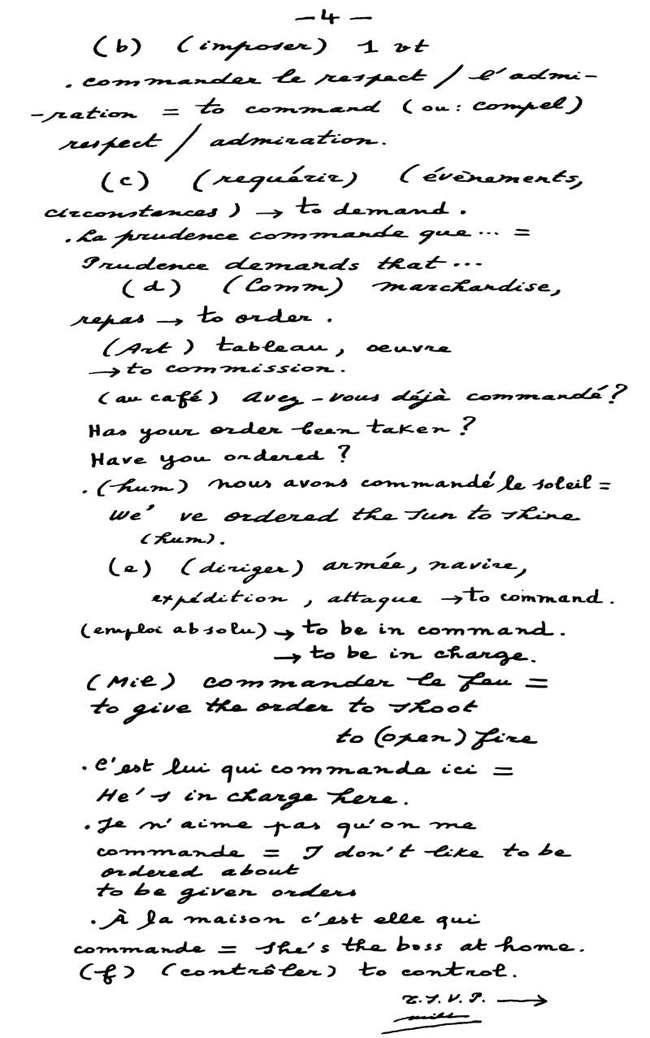 -4-
(b) (imposer) 1 vt
. commander le respect / l'admi-
-ration = to command (ou: compel)
respect / admiration.
(c) (requérir) (évènements,
circonstances) → to demand.
. La prudence commande que... =
Prudence demands that...
(d) (Comm) marchandise,
repas → to order.
(Art) tableau, oeuvre
→ to commission.
(au café) Avez-vous déjà commandé?
Has your order been taken?
Have you ordered?
. (hum) nous avons commandé le soleil =
We've ordered the sun to shine
(hum).
(e) (diriger) armée, navire,
expédition, attaque → to command.
(emploi absolu) → to be in command.
→ to be in charge.
(Mil) commander le feu =
to give the order to shoot
to (open) fire
. C'est lui qui commande ici =
He's in charge here.
. Je n'aime pas qu'on me
commande = I don't like to be
ordered about
to be given orders
. À la maison c'est elle qui
commande = She's the boss at home.
(f) (contrôler) to control.
T.S.V.P. →